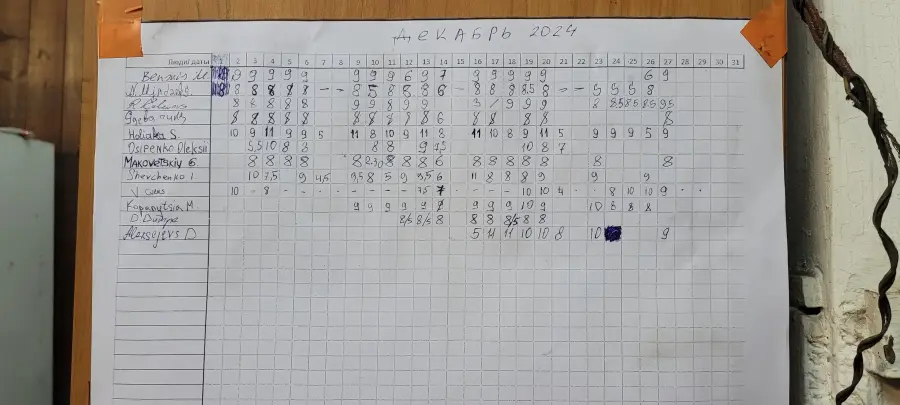 ДЕКАБРЬ 2024
Люди\даты 2 3 4 5 6 7 8 9 10 11 12 13 14 15 16 17 18 19 20 21 22 23 24 25 26 27 28 29 30 31
9 9 9 9 9 9 9 6 9 7 9 9 9 9 9 6 9
8 8 8 8 8 - - 8 5 8 8 8 6 - 8 8 8 8,5 8 - - 5 5 5 8
8 8 8 8 8 9 9 8 9 9 9 9 9 8 8,5 8,5 8,5 9,5
8 8 8 8 8 8 8 8 8 8 6 8 8 8 8 8
Holiaka S. 10 9 11 9 9 5 11 8 10 9 11 8 11 10 8 9 10 11 5 9 9 9 5 9
Osipenko Oleksii 5,5 10 8 8 8 8 9 7,5 10 8 7
Makovetskiy 8 8 8 8 8 2.30 8 8 8 6 8 8 8 8 8 8 8
Shevchenko I. 10 7,5 9 4,5 9,5 8 5 9 9,5 6 11 8 8 8 9 9 9
10 - 8 - - - - - - - - 7,5 7 - - 10 10 4 - - 8 10 10 9 - -
Kopanytsia M. 9 9 9 9 9 9 9 9 10 9 10 8 8 8
8/5 8/5 8 8 8 8/5 8 8
Aleksejevs D 5 11 11 10 10 8 10 9